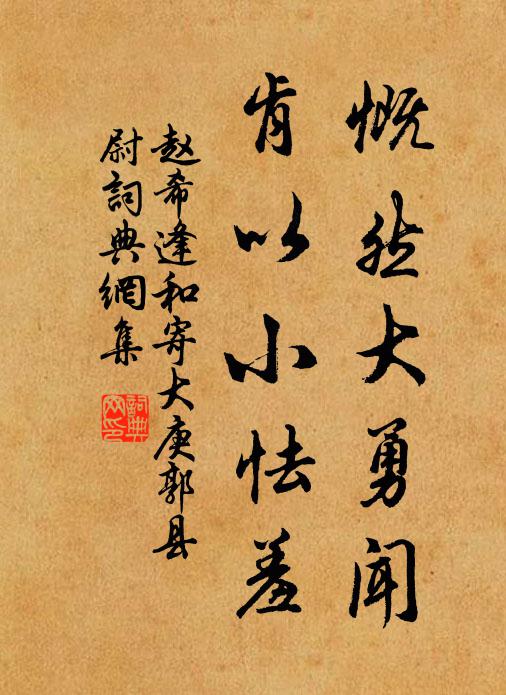 慨然大勇闻
肯以小怯羞
赵希逢和寄大庾郭县
尉詞典網集
詞典
网印